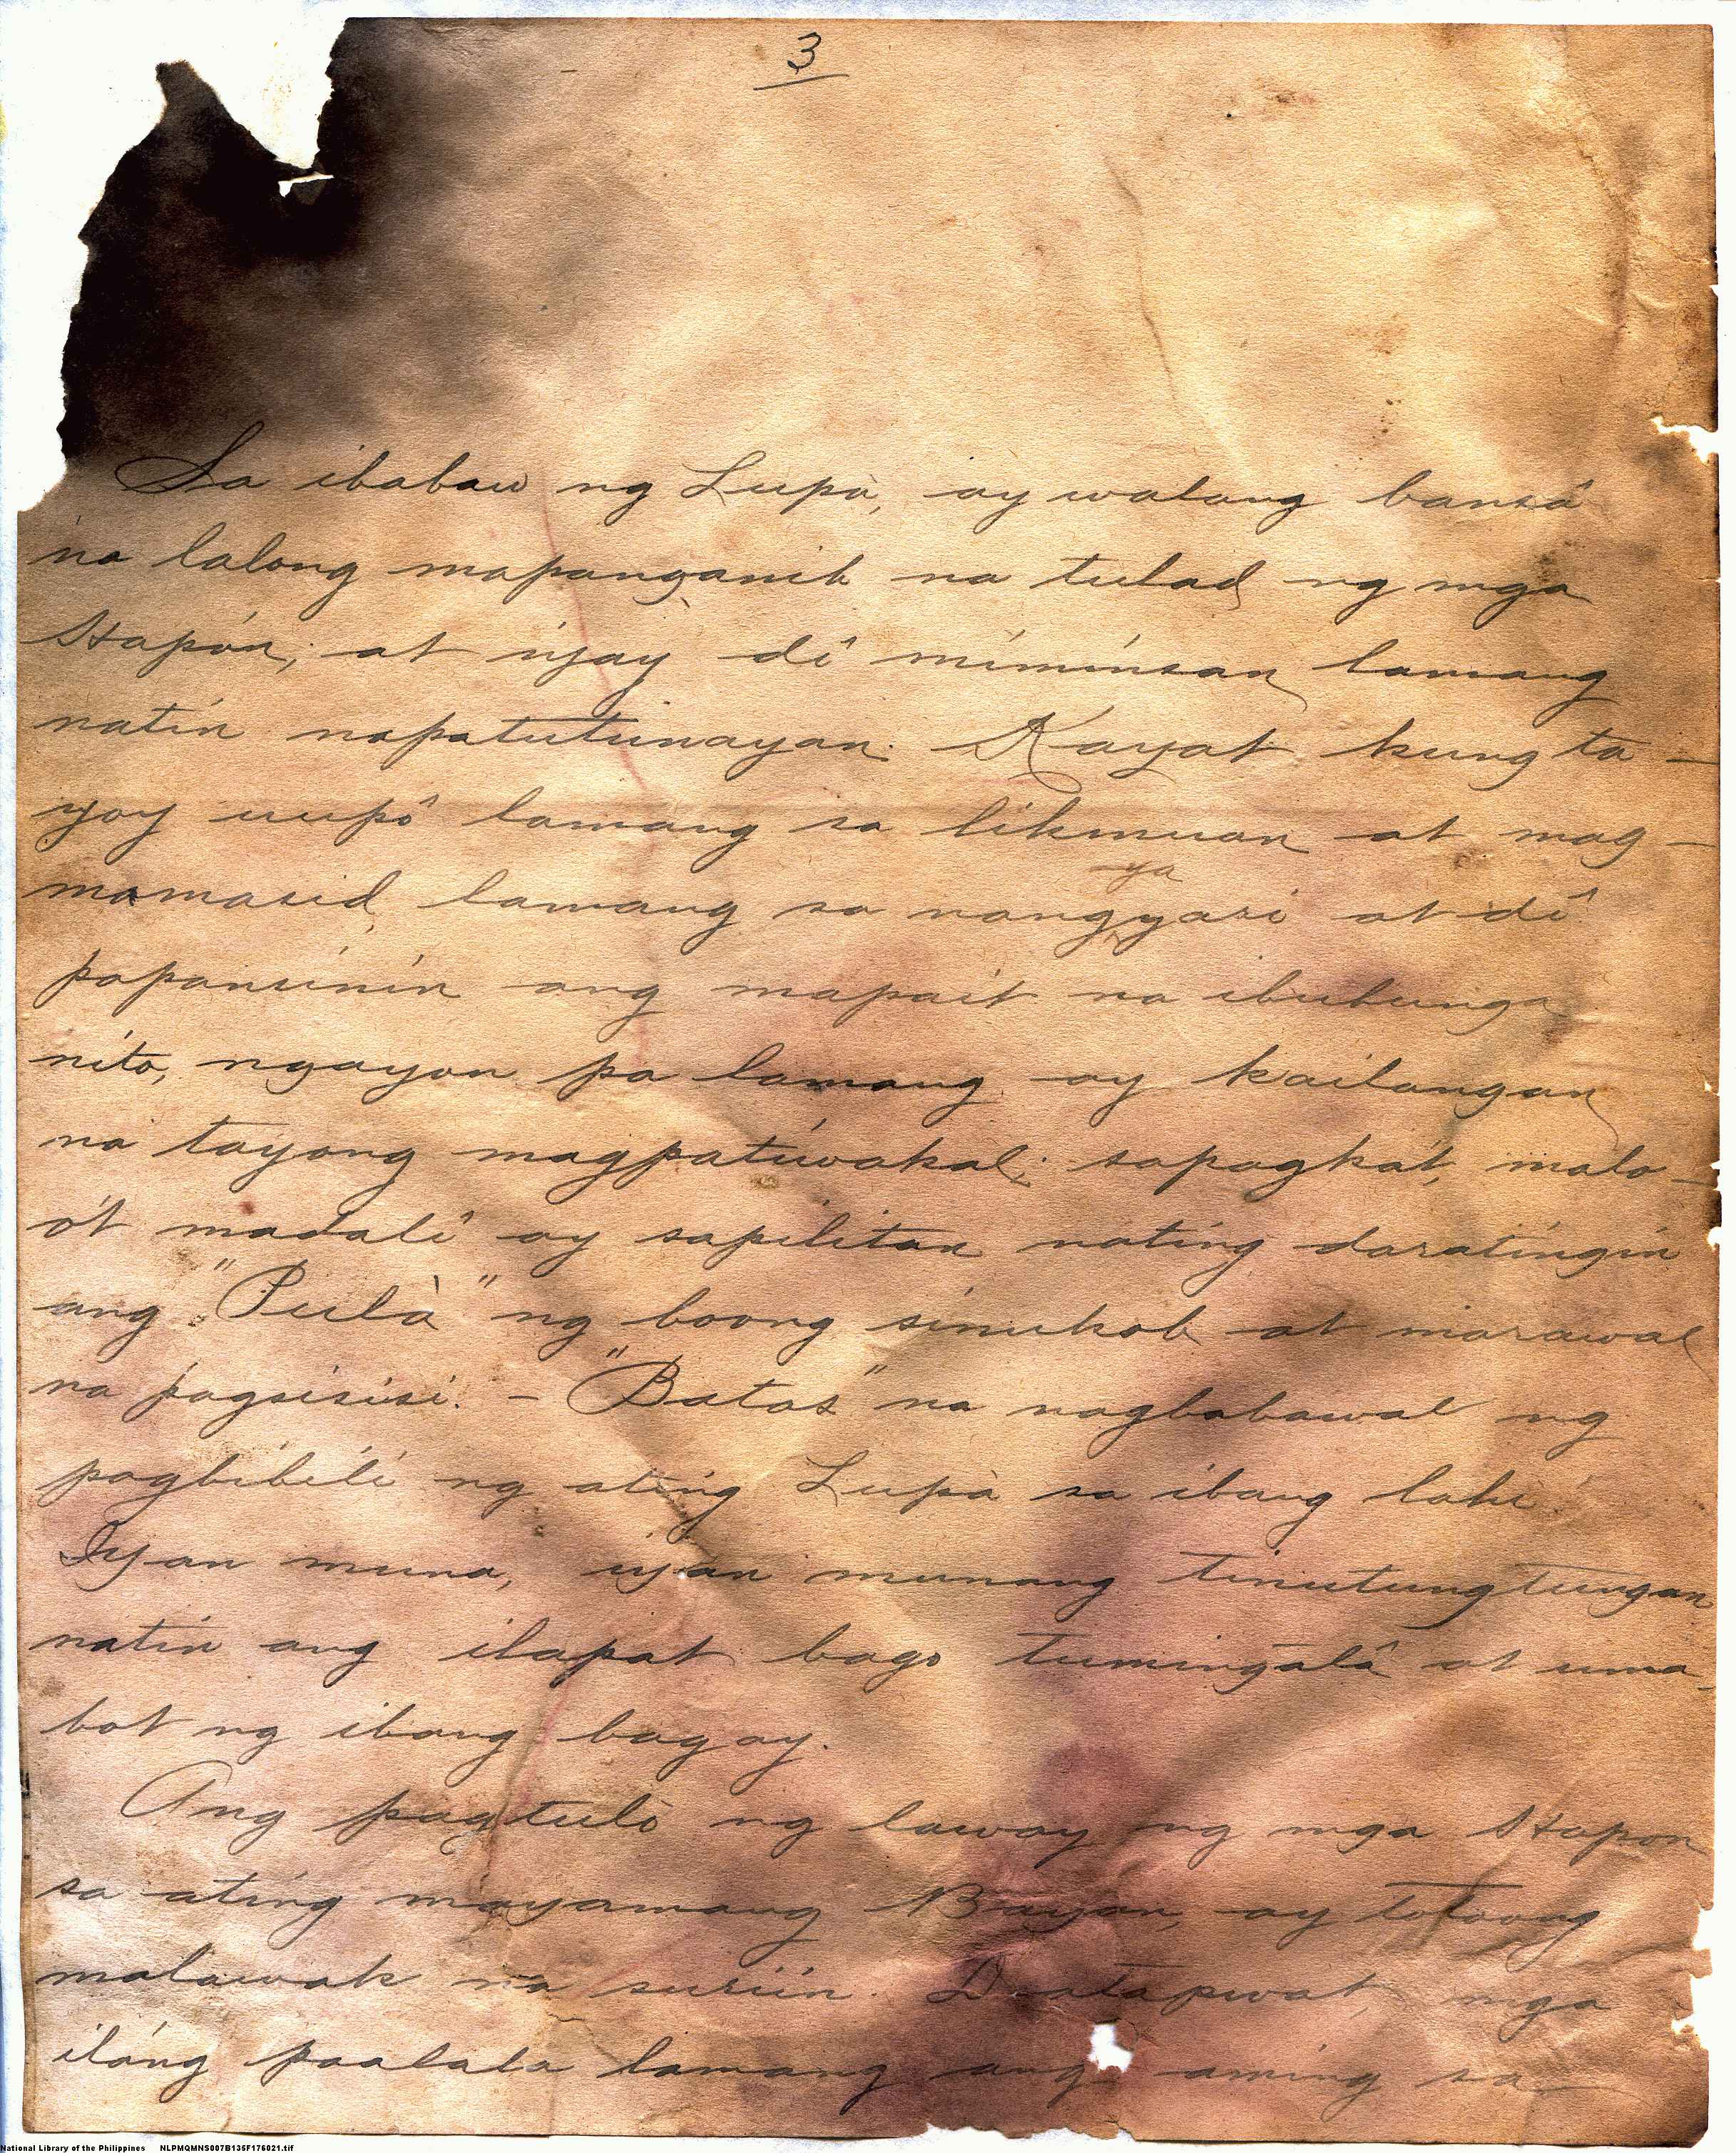 3
Sa ibabaw ng Lupà, ay walang bansâ
na lalong mapanganib na tulad ng mga
Hapón; at iyay dî miminsan lamang
natin napatutunayan. Kayat kung ta-
yoy uupô lamang sa likmuan at mag-
mamasid lamang sa nangyayari at dî
papansinin ang mapait na ibubunga
nito, ngayon pa lamang ay kailangan
na tayong magpatiwakal; sapagkát, mala-
o't madalî ay sapilitan nating daratingin
ang "Pulà" ng boong sinukob at marawal
na pagsisisi. – "Batas" na nagbabawal ng
pagbibili ng ating Lupà sa ibang lahi.
Iyan muna, iyan munang tinutungtungan
natin ang ilapat bago tumingalâ at uma-
bot ng ibang bagay.
Ang pagtulò ng laway ng mga Hapon
sa ating mayamang Bayan, ay totoong
malawak na suriin. Datapwat, mga
iláng paalala lamang ang aming sa-
National Library of the Philippines NLPMQMNS007B135F176021.tif